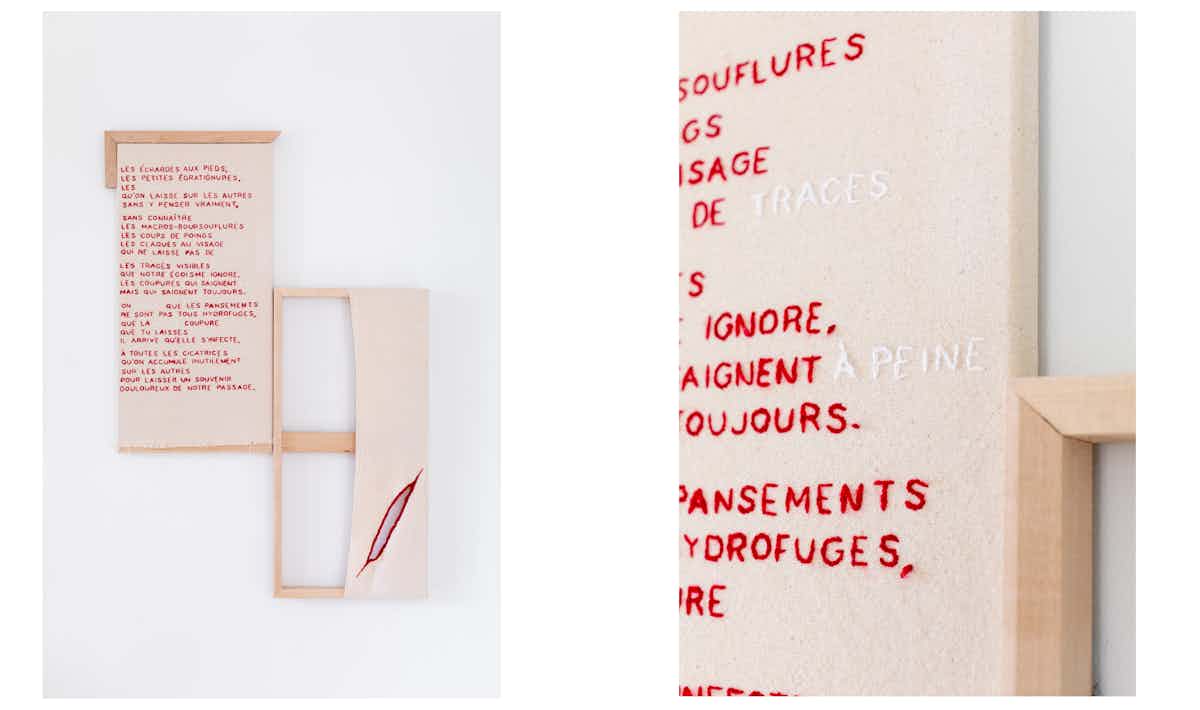 LES ÉCHARDES AUX PIEDS,
LES PETITES ÉGRATIGNURES,
LES
QU'ON LAISSE SUR LES AUTRES
SANS Y PENSER VRAIMENT,
SANS CONNAÎTRE
LES MACROS-BOURSOUFLURES
LES COUPS DE POINGS
LES CLAQUES AU VISAGE
QUI NE LAISSE PAS DE
LES TRACES VISIBLES
QUE NOTRE ÉGOÏSME IGNORE,
LES COUPURES QUI SAIGNENT
MAIS QUI SAIGNENT TOUJOURS.
ON QUE LES PANSEMENTS
NE SONT PAS TOUS HYDROFUGES,
QUE LA COUPURE
QUE TU LAISSES
IL ARRIVE QU'ELLE S'INFECTE,
À TOUTES LES CICATRICES
QU'ON ACCUMULE INUTILEMENT
SUR LES AUTRES
POUR LAISSER UN SOUVENIR
DOULOUREUX DE NOTRE PASSAGE.
SOUFLURES
GS
ISAGE
DE TRACES
S
IGNORE,
AIGNENT À PEINE
TOUJOURS.
PANSEMENTS
YDROFUGES,
URE